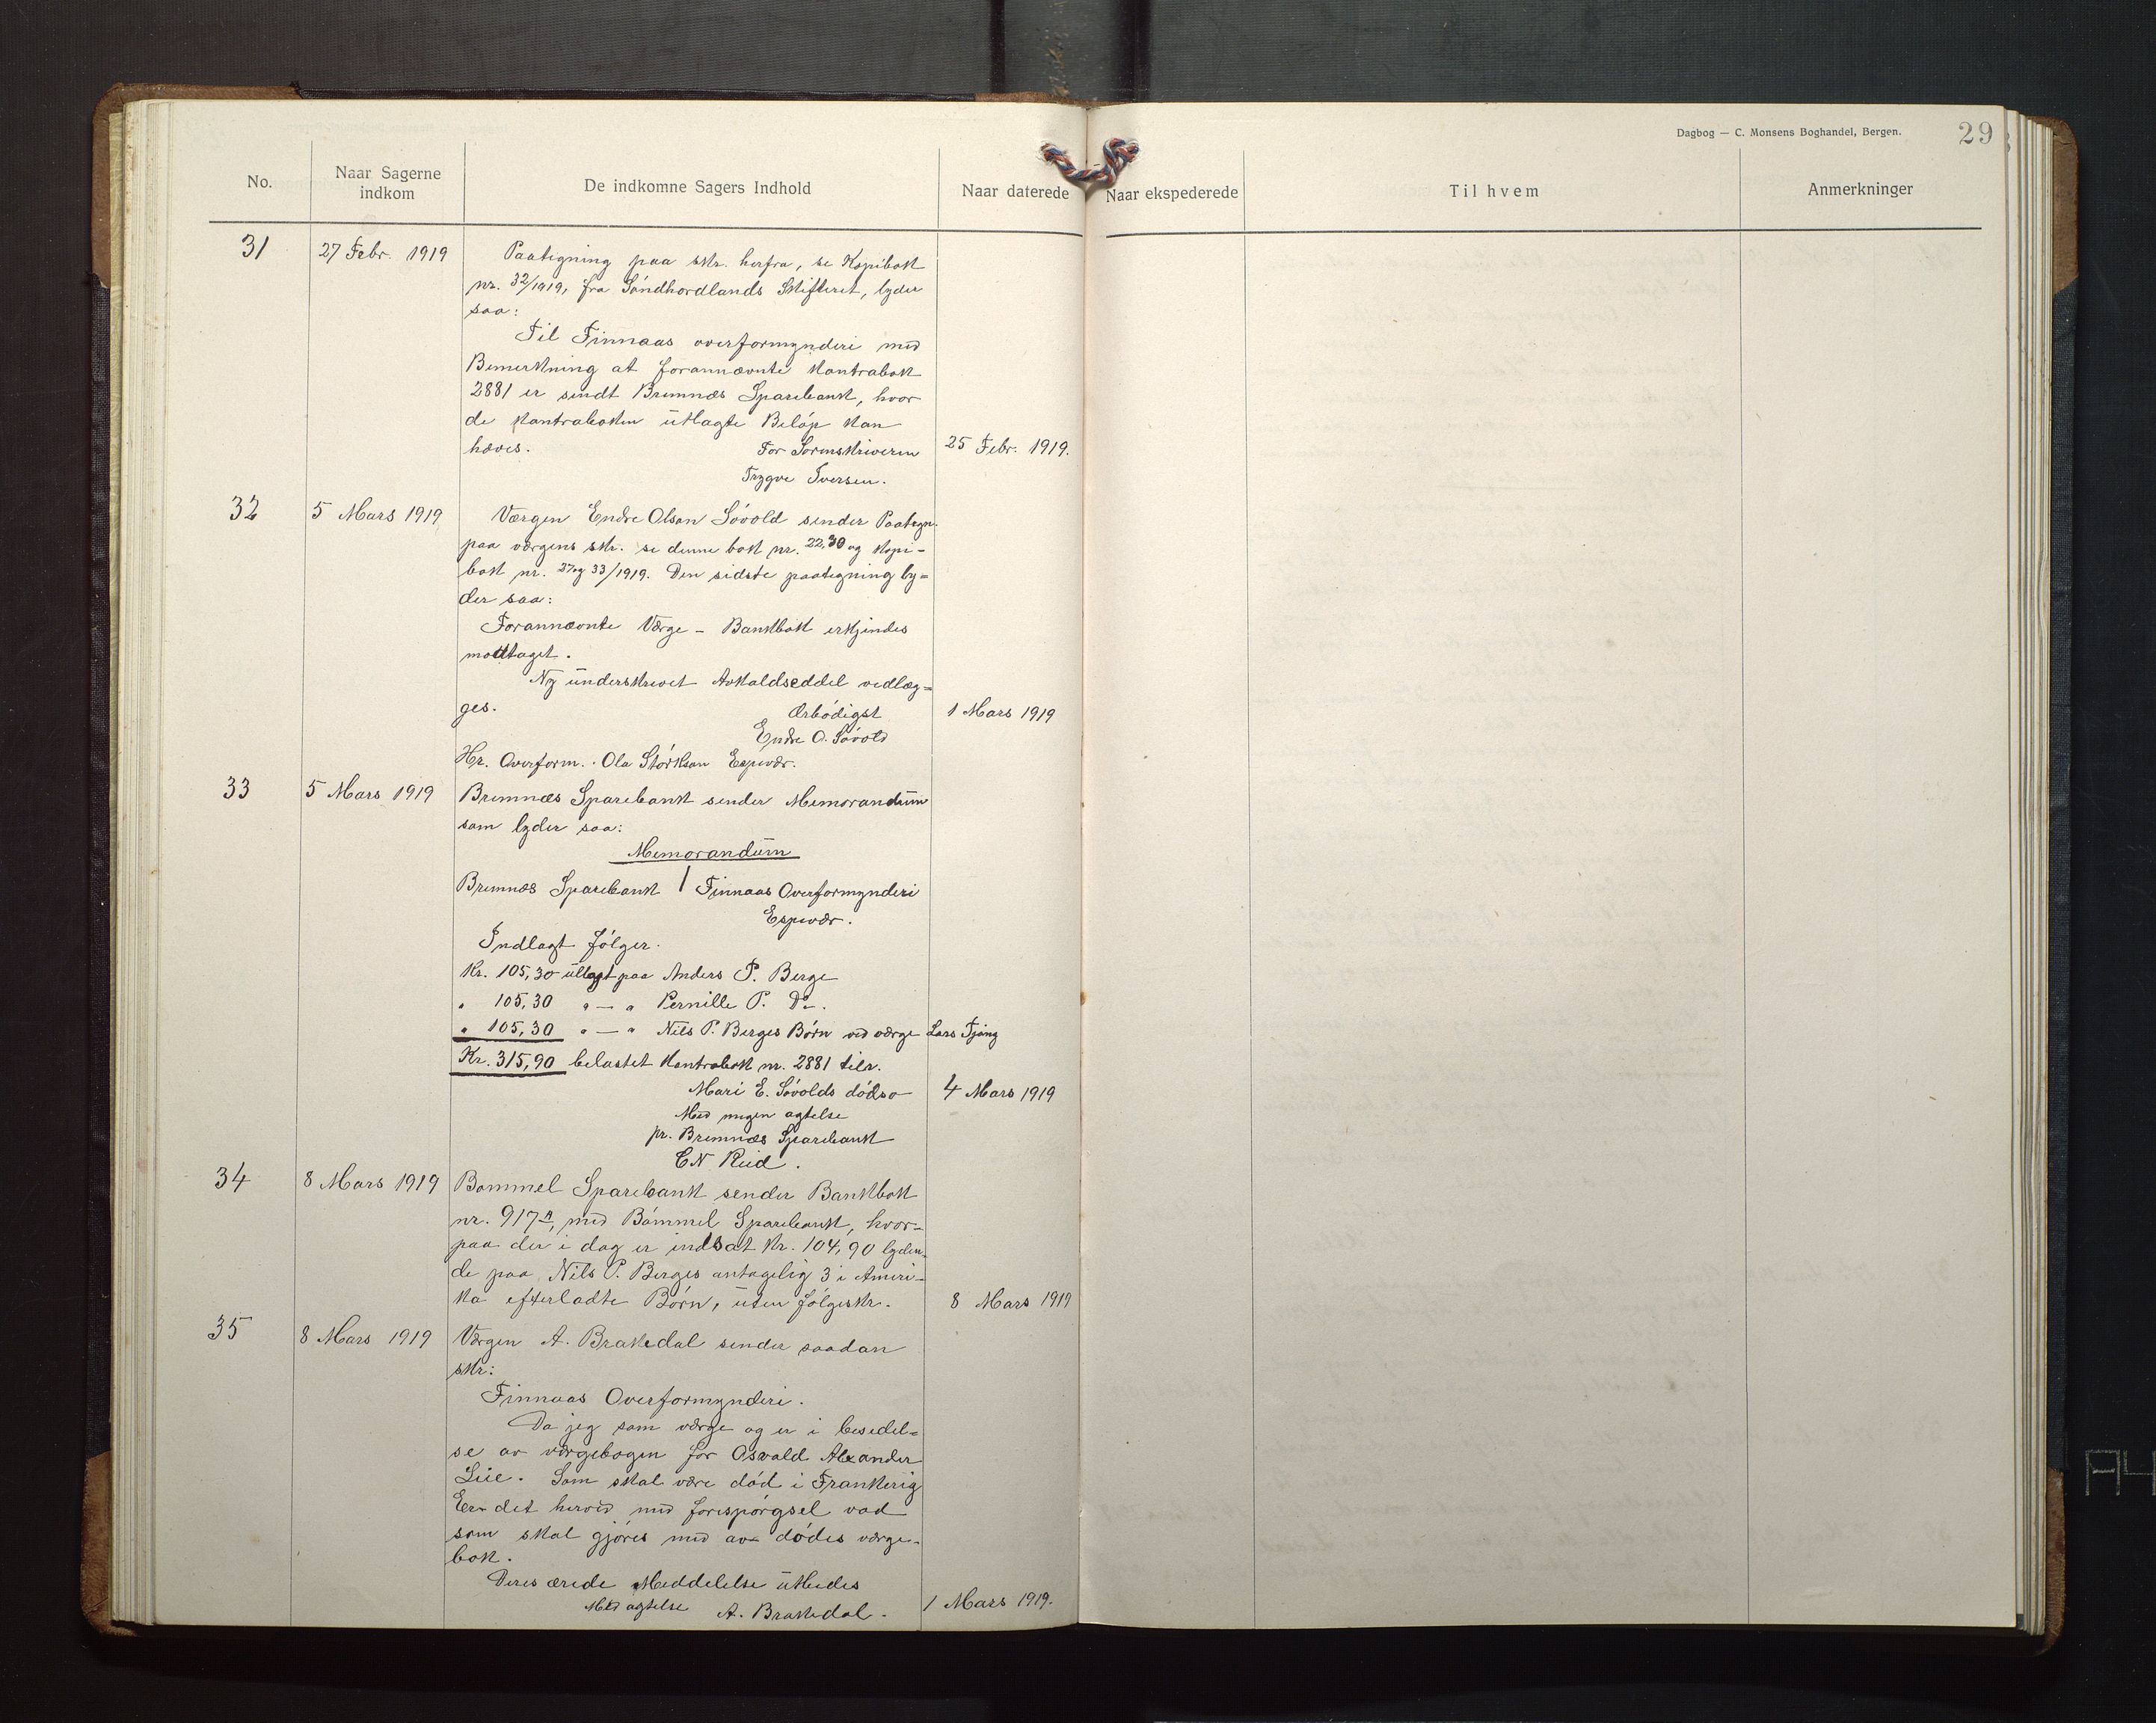 Dagbog — C. Monsens Boghandel, Bergen. 29
No. Naar Sagerne indkom De indkomne Sagers Indhold Naar daterede Naar ekspederede Til hvem Anmerkninger
31 27 Febr. 1919 Paategning paa skr. herfra, se Kopibok
nr. 32/1919, fra Söndhordlands Skifteret, lyder
saa:
Til Finnaas overformynderi med
Bemerkning at forannævnte Kontrabok
2881 er sendt Bremnæs Sparebank, hvor
de Kontraboken utlagte Beløp kan
hæves. For Sorenskriveren 25 Febr. 1919.
Trygve Iversen.
32 5 Mars 1919 Værgen Endre Olson Løvold sender Paategn.
paa værgens skr. se denne bok nr. 22, 30 og Kopi-
bok nr. 27 og 33/1919. Den sidste paategning ly=
der saa:
Forannævnte Værge - Bankbok erkjendes
mottaget.
Ny underskrevet Avkaldseddel vedlæg=
ges. Ærbødigst 1 Mars 1919
Endre O. Løvold
Hr. Overform. Ola Størkson Espevær.
33 5 Mars 1919 Bremnæs Sparebank sender Memorandum
som lyder saa:
Memorandum
Bremnæs Sparebank / Finnaas Overformynderi
Espevær.
Indlagt følger.
Kr. 105,30 utlagt paa Anders P. Berge
" 105,30 " — " Pernille P. Do.
" 105,30 " — " Nils P. Berges Børn ved værge Lars Tjong
Kr. 315,90 belastet Kontrabok nr. 2881 tilr.
Mari E. Løvolds dødsbo 4 Mars 1919
Med megen agtelse
pr. Bremnæs Sparebank
34 8 Mars 1919 Bømmel Sparebank sender Bankbok
nr. 917 A, med Bømmel Sparebank, hvor-
paa der i dag er indsat Kr. 104,90 lyden-
de paa Nils P. Berges antagelig 3 i Ameri-
ka efterladte Børn, uten følgeskr. 8 Mars 1919
35 8 Mars 1919 Værgen A. Brakedal sender saadan
skr:
Finnaas Overformynderi.
Da jeg som værge og er i besedel=
se av værgebogen for Osvald Alexander
Lie. Som skal være død i Frankerig
Er det herved med forespørgsel vad
som skal gjøres med av dødes værge-
bok.
Deres ærede Meddelelse utbedes
Med agtelse A. Brakedal. 1 Mars 1919.